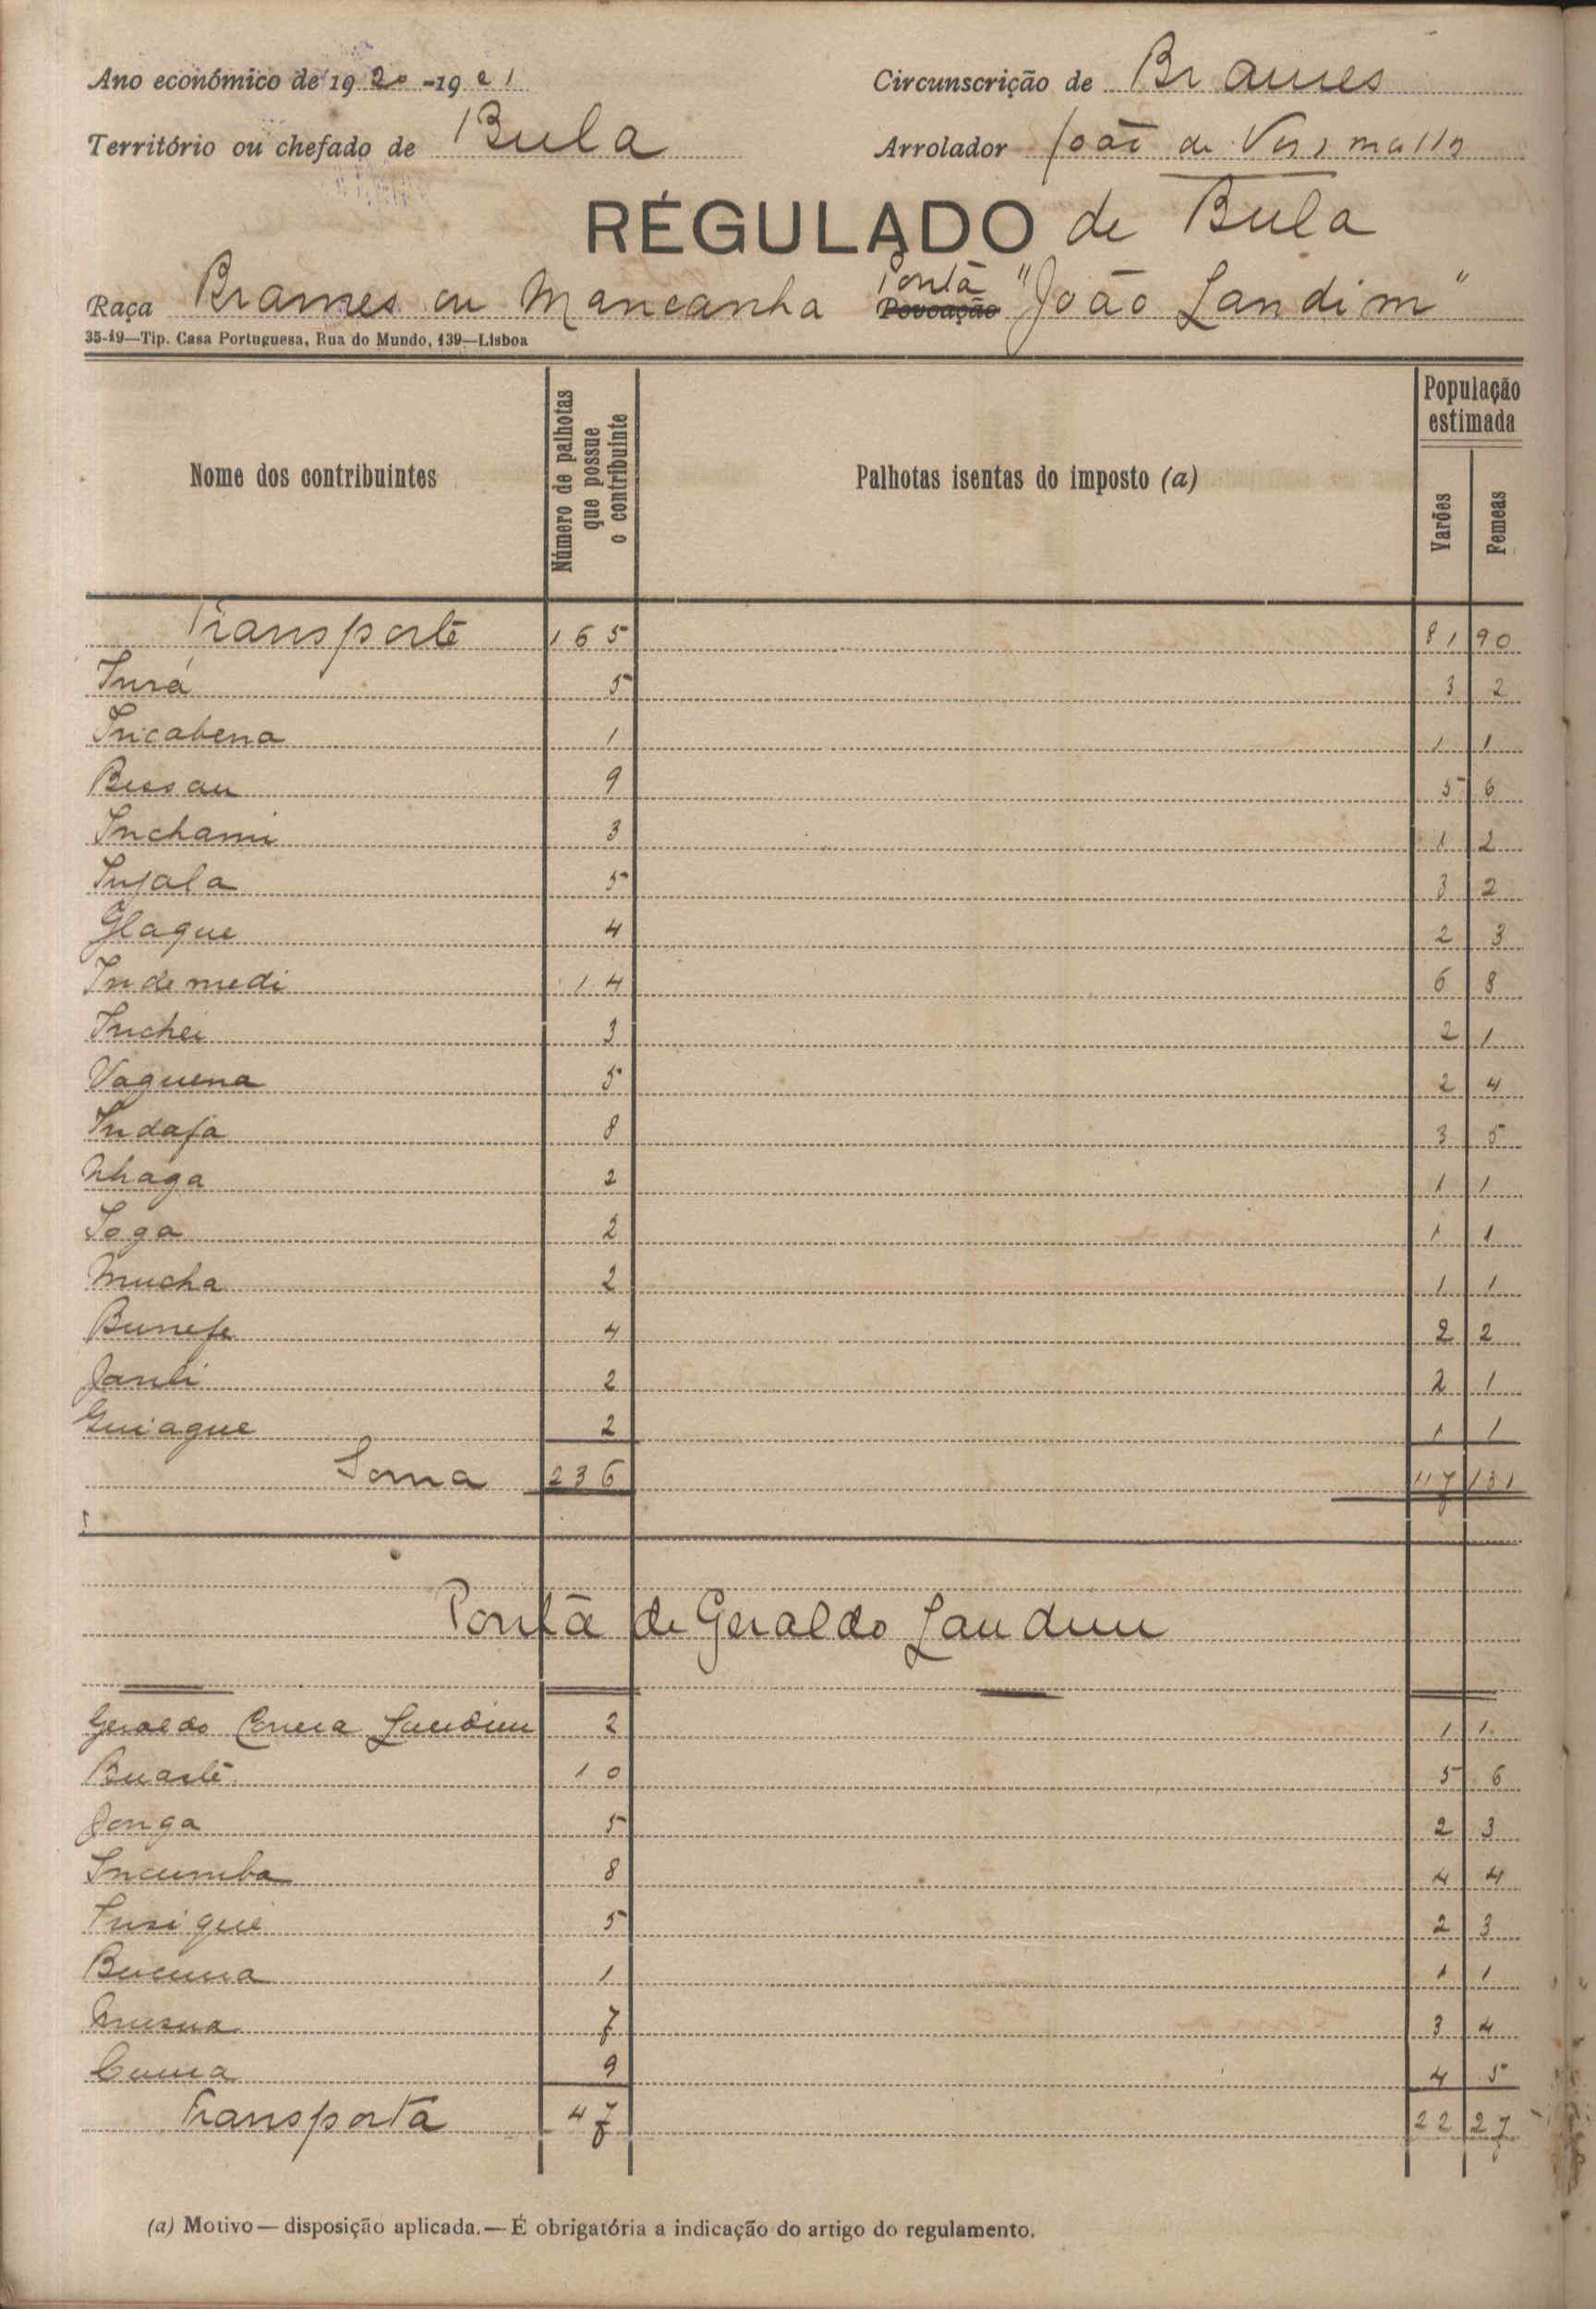 Ano económico de 1920-1921 Circunscrição de Brames
Território ou chefado de Bula Arrolador João de
RÉGULADO de Bula
Raça Brames ou Mancanha Povoação Ponta "João Landim"
35-19—Tip. Casa Portuguesa, Rua do Mundo, 139—Lisboa
Nome dos contribuintes
Número de palhotas que possue o contribuinte
Palhotas isentas do imposto (a)
População estimada
Varões
Femeas
Transporte 165 81 90
Inrá 5 3 2
Incabena 1 1 1
Bissau 9 5 6
Inchami 3 1 2
5 3 2
Glaque 4 2 3
Indemedi 14 6 8
Inchei 3 2 1
Vaguena 5 2 4
Indafa 8 3 5
Nhaga 2 1 1
Toga 2 1 1
Mucha 2 1 1
Bunefe 4 2 2
Janti 2 2 1
Guiague 2 1 1
Soma 236 117 131
Ponta de Geraldo Landim
Geraldo Correia Landim 2 1 1
10 5 6
Jonga 5 2 3
Incumba 8 4 4
5 2 3
1 1 1
7 3 4
9 4 5
Transporta 47 22 27
(a) Motivo — disposição aplicada. — É obrigatória a indicação do artigo do regulamento.